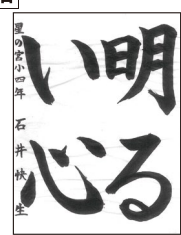 明る
い心
星の宮小四年 石井快生